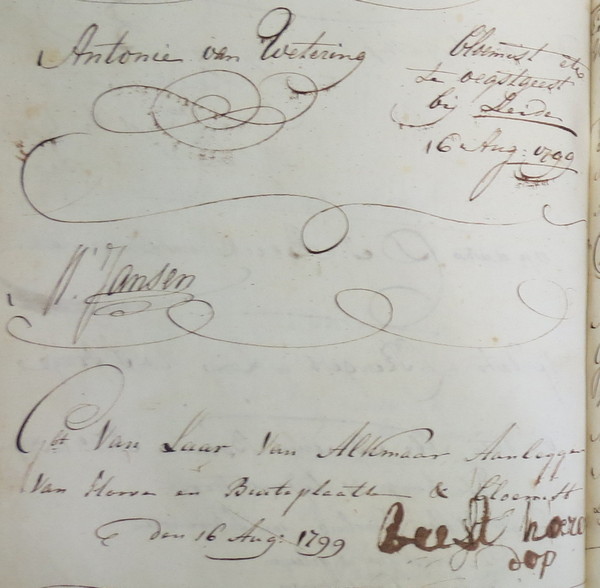 Antonie van Wetering
bloemist etc
te oegstgeest
bij Leide
16 Aug: 1799
Jansen
Gbt Van Laar Van Alkmaar Aanlegger
Van Hoven en Buiteplaatse & bloemist
den 16 Aug: 1799
Beest
dop